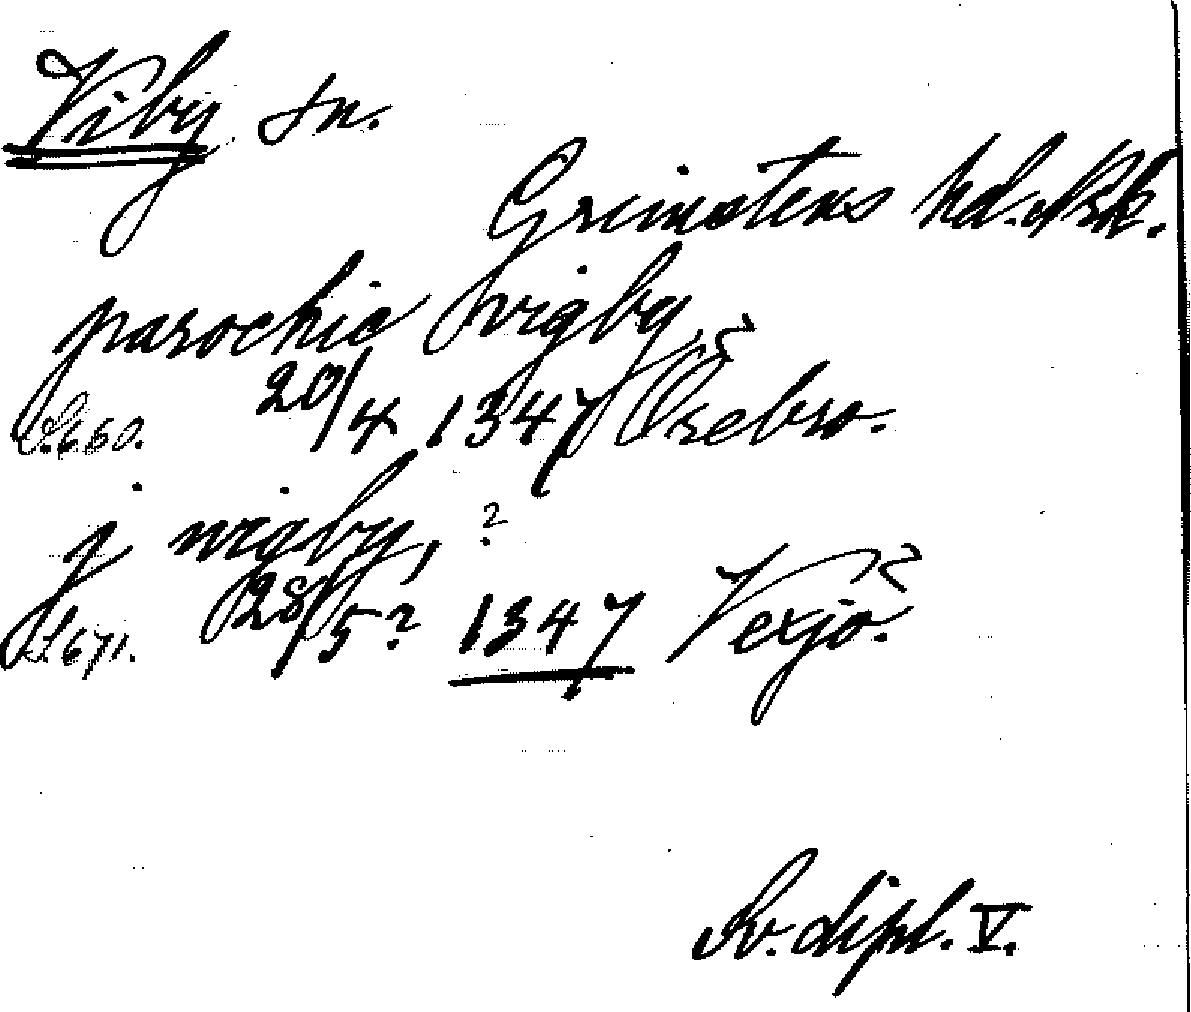 Viby sn.
Grimstens hd. Nrk.
parochie wigby,
S. 660. 20/4 1347 Örebro.
j wigby, ?
S. 671. 28/5? 1347 Vexjö.
Sv. dipl. V.